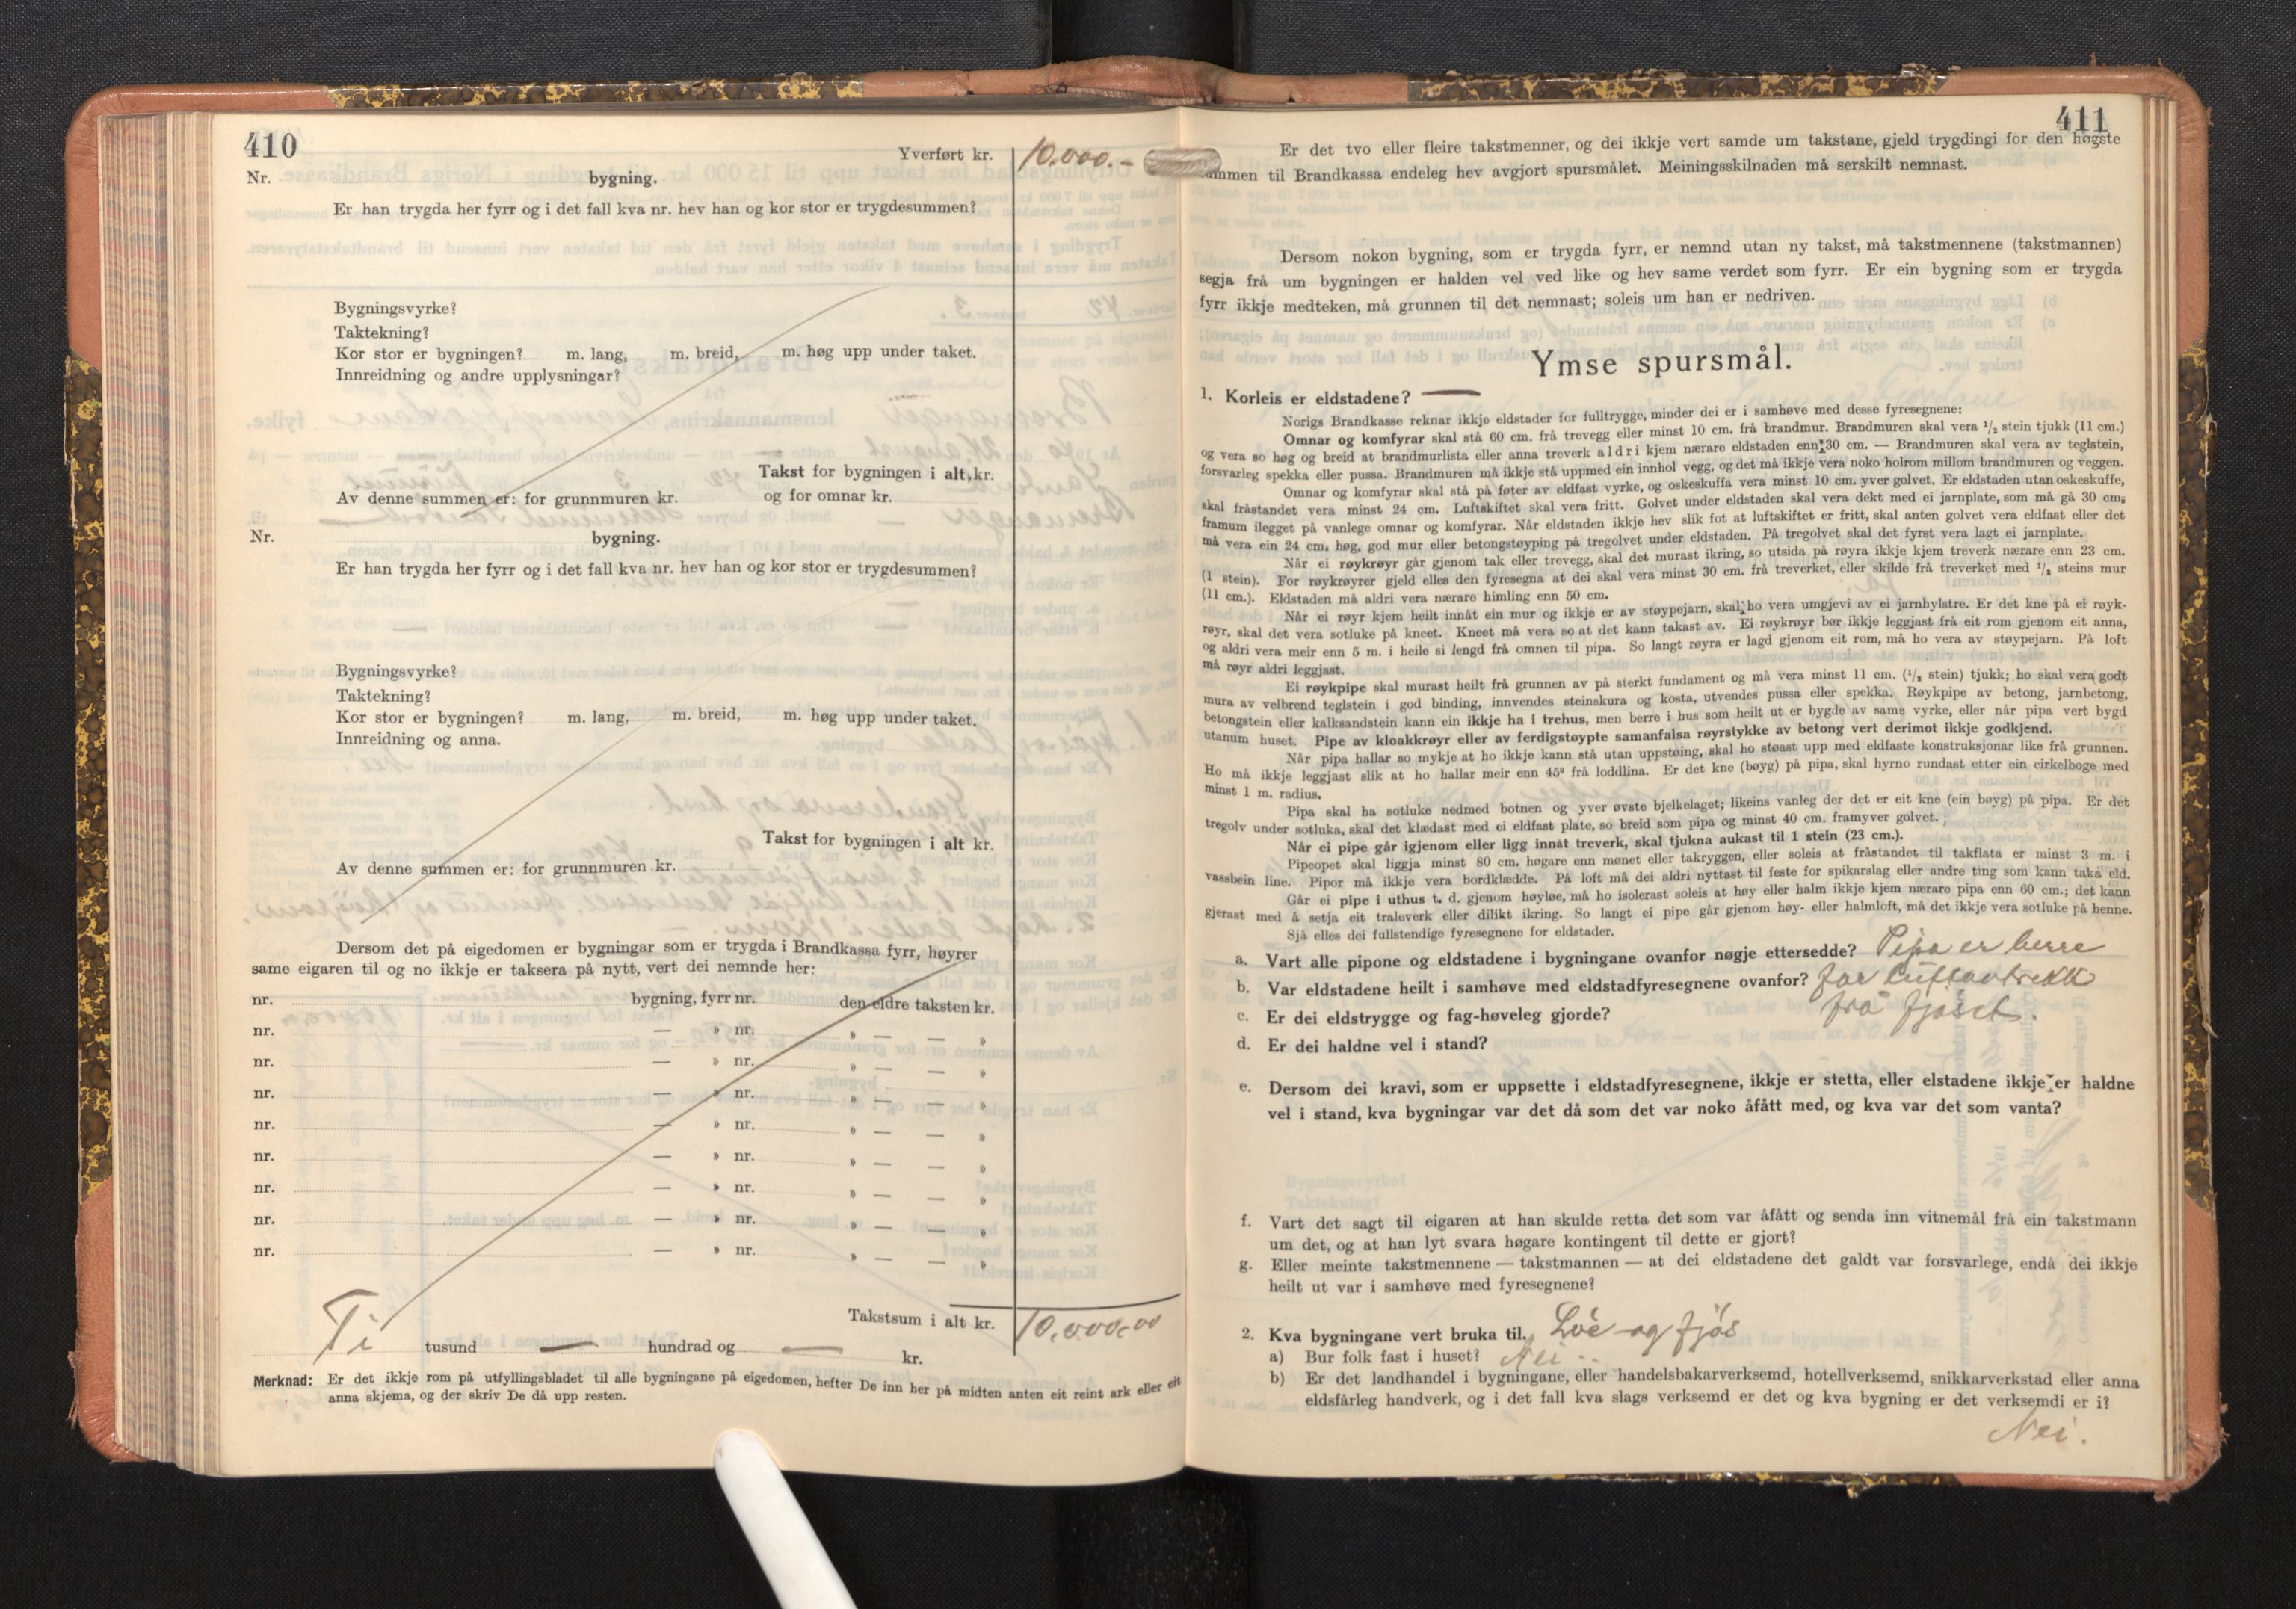 410
Yverført kr. 10.000.-
Nr. bygning.
Er han trygda her fyrr og i det fall kva nr. hev han og kor stor er trygdesummen?
Bygningsvyrke?
Taktekning?
Kor stor er bygningen? m. lang, m. breid, m. høg upp under taket.
Innreidning og andre upplysningar?
Takst for bygningen i alt, kr.
Av denne summen er: for grunnmuren kr. og for omnar kr.
Nr. bygning.
Er han trygda her fyrr og i det fall kva nr. hev han og kor stor er trygdesummen?
Bygningsvyrke?
Taktekning?
Kor stor er bygningen? m. lang, m. breid, m. høg upp under taket.
Innreidning og anna.
Takst for bygningen i alt kr.
Av denne summen er: for grunnmuren kr.
Dersom det på eigedomen er bygningar som er trygda i Brandkassa fyrr, høyrer
same eigaren til og no ikkje er taksera på nytt, vert dei nemnde her:
nr. bygning, fyrr nr. den eldre taksten kr.
nr. — » nr. » — — »
nr. — » nr. » — — »
nr. — » nr. » — — »
nr. — » nr. » — — »
nr. — » nr. » — — »
nr. — » nr. » — — »
nr. — » nr. » — — »
nr. — » nr. » — — »
Takstsum i alt kr. 10.000,00
Ti tusund — hundrad og — kr.
Merknad: Er det ikkje rom på utfyllingsbladet til alle bygningane på eigedomen, hefter De inn her på midten anten eit reint ark eller eit
anna skjema, og der skriv De då upp resten.
411
Er det tvo eller fleire takstmenner, og dei ikkje vert samde um takstane, gjeld trygdingi for den høgste
summen til Brandkassa endeleg hev avgjort spursmålet. Meiningsskilnaden må serskilt nemnast.
Dersom nokon bygning, som er trygda fyrr, er nemnd utan ny takst, må takstmennene (takstmannen)
segja frå um bygningen er halden vel ved like og hev same verdet som fyrr. Er ein bygning som er trygda
fyrr ikkje medteken, må grunnen til det nemnast; soleis um han er nedriven.
Ymse spursmål.
1. Korleis er eldstadene? —
Norigs Brandkasse reknar ikkje eldstader for fulltrygge, minder dei er i samhøve med desse fyresegnene:
Omnar og komfyrar skal stå 60 cm. frå trevegg eller minst 10 cm. frå brandmur. Brandmuren skal vera ½ stein tjukk (11 cm.)
og vera so høg og breid at brandmurlista eller anna treverk aldri kjem nærare eldstaden enn 30 cm. — Brandmuren skal vera av teglstein,
forsvarleg spekka eller pussa. Brandmuren må ikkje stå uppmed ein innhol vegg, og det må ikkje vera noko holrom millom brandmuren og veggen.
Omnar og komfyrar skal stå på føter av eldfast vyrke, og oskeskuffa vera minst 10 cm. yver golvet. Er eldstaden utan oskeskuffe,
skal fråstandet vera minst 24 cm. Luftskiftet skal vera fritt. Golvet under eldstaden skal vera dekt med ei jarnplate, som må gå 30 cm.
framum ilegget på vanlege omnar og komfyrar. Når eldstaden ikkje hev slik fot at luftskiftet er fritt, skal anten golvet vera eldfast eller det
må vera ein 24 cm. høg, god mur eller betongstøyping på tregolvet under eldstaden. På tregolvet skal det fyrst vera lagt ei jarnplate.
Når ei røykrøyr går gjenom tak eller trevegg, skal det murast ikring, so utsida på røyra ikkje kjem treverk nærare enn 23 cm.
(1 stein). For røykrøyrer gjeld elles den fyresegna at dei skal vera minst 30 cm. frå treverket, eller skilde frå treverket med ½ steins mur
(11 cm.). Eldstaden må aldri vera nærare himling enn 50 cm.
Når ei røyr kjem heilt innåt ein mur og ikkje er av støypejarn, skal ho vera umgjevi av ei jarnhylstre. Er det kne på ei røyk-
røyr, skal det vera sotluke på kneet. Kneet må vera so at det kann takast av. Ei røykrøyr bør ikkje leggjast frå eit rom gjenom eit anna,
og aldri vera meir enn 5 m. i heile si lengd frå omnen til pipa. So langt røyra er lagd gjenom eit rom, må ho vera av støypejarn. På loft
må røyr aldri leggjast.
Ei røykpipe skal murast heilt frå grunnen av på sterkt fundament og må vera minst 11 cm. (½ stein) tjukk; ho skal vera godt
mura av velbrend teglstein i god binding, innvendes steinskura og kosta, utvendes pussa eller spekka. Røykpipe av betong, jarnbetong,
betongstein eller kalksandstein kann ein ikkje ha i trehus, men berre i hus som heilt ut er bygde av same vyrke, eller når pipa vert bygd
utanum huset. Pipe av kloakkrøyr eller av ferdigstøypte samanfalsa røyrstykke av betong vert derimot ikkje godkjend.
Når pipa hallar so mykje at ho ikkje kann stå utan uppstøing, skal ho støast upp med eldfaste konstruksjonar like frå grunnen.
Ho må ikkje leggjast slik at ho hallar meir enn 45° frå loddlina. Er det kne (bøyg) på pipa, skal hyrno rundast etter ein cirkelboge med
minst 1 m. radius.
Pipa skal ha sotluke nedmed botnen og yver øvste bjelkelaget; likeins vanleg der det er eit kne (ein bøyg) på pipa. Er det
tregolv under sotluka, skal det klædast med ei eldfast plate, so breid som pipa og minst 40 cm. framyver golvet.
Når ei pipe går igjenom eller ligg innåt treverk, skal tjukna aukast til 1 stein (23 cm.).
Pipeopet skal liggja minst 80 cm. høgare enn mønet eller takryggen, eller soleis at fråstandet til takflata er minst 3 m. i
vassbein line. Pipor må ikkje vera bordklædde. På loft må dei aldri nyttast til feste for spikarslag eller andre ting som kann taka eld.
Går ei pipe i uthus t. d. gjenom høyløe, må ho isolerast soleis at høy eller halm ikkje kjem nærare pipa enn 60 cm.; det kann
gjerast med å setja eit traleverk eller dilikt ikring. So langt ei pipe går gjenom høy- eller halmloft, må det ikkje vera sotluke på henne.
Sjå elles dei fullstendige fyresegnene for eldstader.
a. Vart alle pipone og eldstadene i bygningane ovanfor nøgje ettersedde? Pipa er berre
b. Var eldstadene heilt i samhøve med eldstadfyresegnene ovanfor? for luftavtrekk
c. Er dei eldstrygge og fag-høveleg gjorde? frå fjøset.
d. Er dei haldne vel i stand?
e. Dersom dei kravi, som er uppsette i eldstadfyresegnene, ikkje er stetta, eller elstadene ikkje er haldne
vel i stand, kva bygningar var det då som det var noko åfått med, og kva var det som vanta?
f. Vart det sagt til eigaren at han skulde retta det som var åfått og senda inn vitnemål frå ein takstmann
um det, og at han lyt svara høgare kontingent til dette er gjort?
g. Eller meinte takstmennene — takstmannen — at dei eldstadene det galdt var forsvarlege, endå dei ikkje
heilt ut var i samhøve med fyresegnene?
2. Kva bygningane vert bruka til. Løe og fjøs
a) Bur folk fast i huset? Nei
b) Er det landhandel i bygningane, eller handelsbakarverksemd, hotellverksemd, snikkarverkstad eller anna
eldsfårleg handverk, og i det fall kva slags verksemd er det og kva bygning er det verksemdi er i?
Nei.